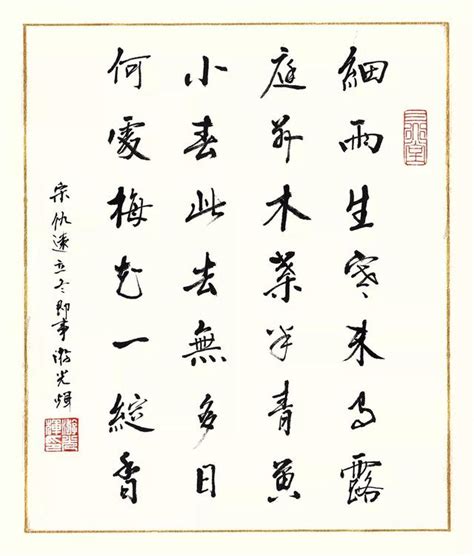 細雨生寒未有露
庭前木葉半青黃
小春此去無多日
何處梅花一綻香
宋仇遠立冬即事光煇